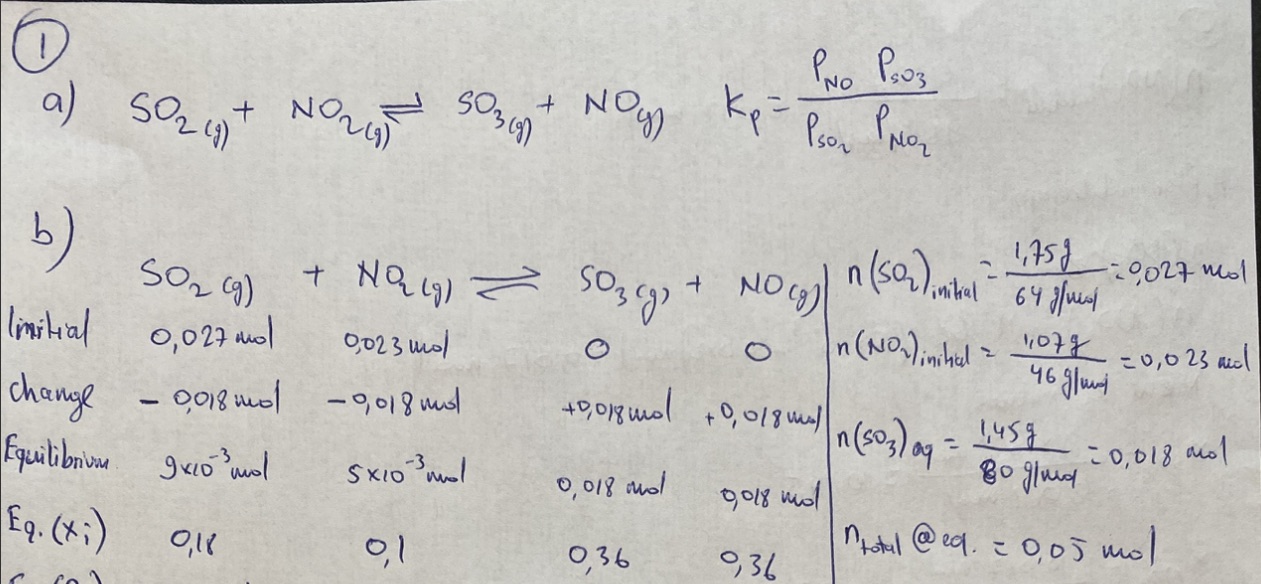 1
a) SO2(g) + NO2(g) ⇌ SO3(g) + NO(g) Kp = PNO PSO3 / PSO2 PNO2
b)
SO2(g) + NO2(g) ⇌ SO3(g) + NO(g)
Initial 0,027 mol 0,023 mol 0 0
Change - 0,018 mol - 0,018 mol +0,018 mol +0,018 mol
Equilibrium 9x10^-3 mol 5x10^-3 mol 0,018 mol 0,018 mol
Eq. (xi) 0,18 0,1 0,36 0,36
n(SO2)initial = 1,75g / 64 g/mol = 0,027 mol
n(NO2)initial = 1,07g / 46 g/mol = 0,023 mol
n(SO3)aq = 1,45g / 80 g/mol = 0,018 mol
ntotal @ eq. = 0,05 mol